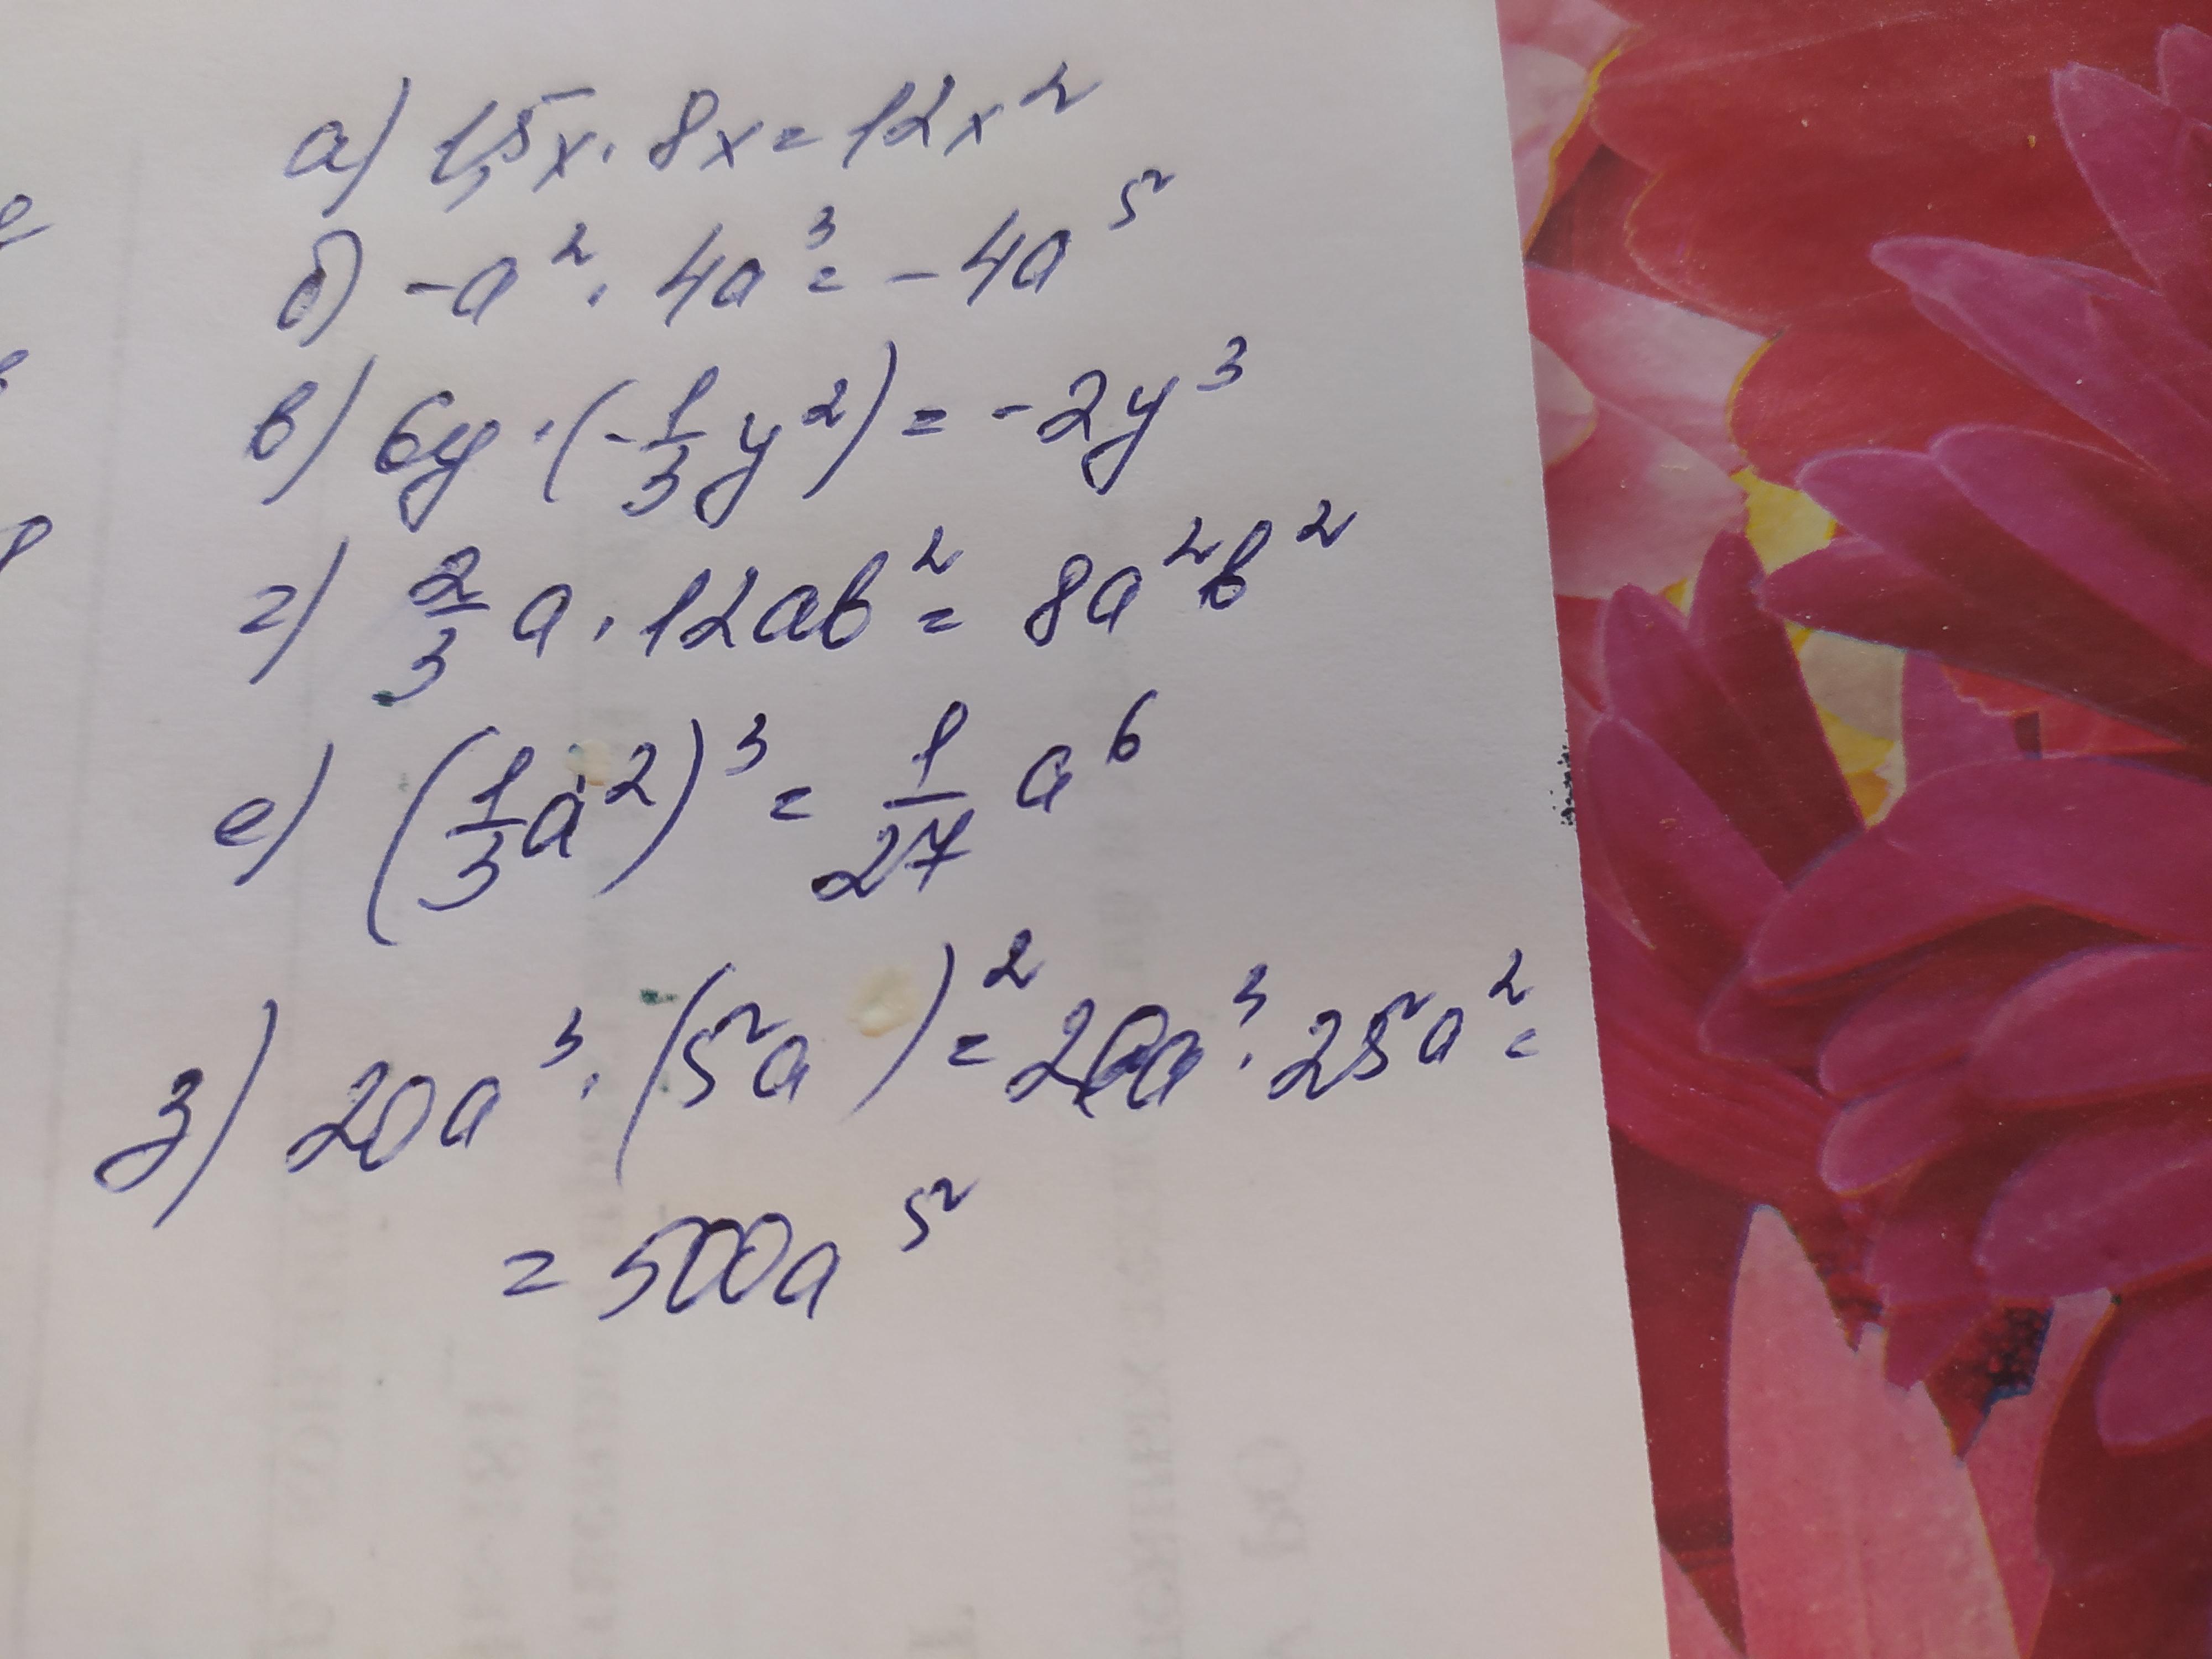 а) 1,5x · 8x = 12x²
б) -a² · 4a³ = -4a⁵
в) 6y · (-1/3 y²) = -2y³
г) 2/3 a · 12ab² = 8a²b²
е) (1/3 a²)³ = 1/27 a⁶
з) 20a³ · (5a)² = 20a³ · 25a² =
= 500a⁵